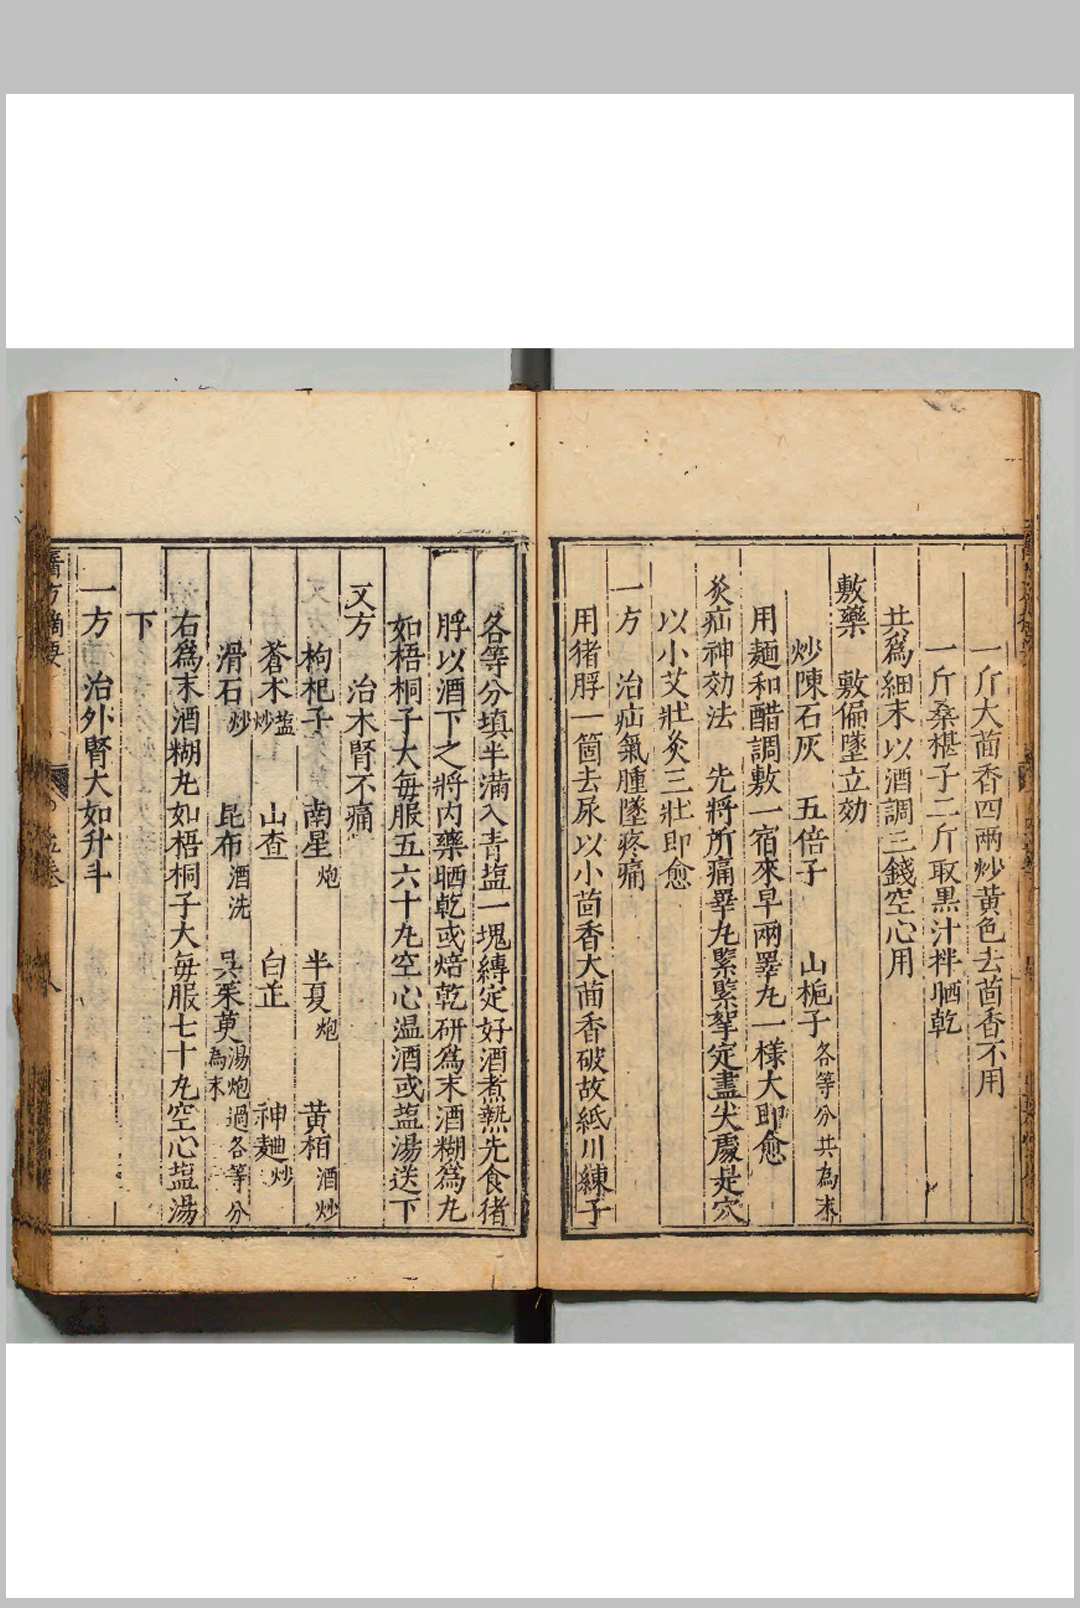 一斤大茴香四兩炒黄色去茴香不用
一斤桑椹子二斤取黒汁拌晒乾
共爲細末以酒調三錢空心用
敷藥　敷偏墜立効
炒陳石灰　五倍子　山梔子各等分共為末
用麺和醋調敷一宿來早兩睪丸一様大即愈
灸疝神効法　先將所痛睪丸緊緊挐定盡尖處是穴
以小艾壯灸三壯即愈
一方　治疝氣腫墜疼痛
用猪脬一箇去尿以小茴香大茴香破故紙川練子
各等分填半滿入青塩一塊縳定好酒煮熟先食猪
脬以酒下之將内藥晒乾或焙乾研爲末酒糊爲丸
如梧桐子大毎服五六十丸空心温酒或塩湯送下
又方　治木腎不痛
枸杞子　南星炮　半夏炮　黄栢酒炒
蒼朮塩炒　山查　白芷　神麯炒
滑石炒　昆布酒洗　吴茱萸湯炮過各等分為末
右爲末酒糊丸如梧桐子大毎服七十丸空心塩湯
下
一方　治外腎大如升斗
醫方摘要
卷
八